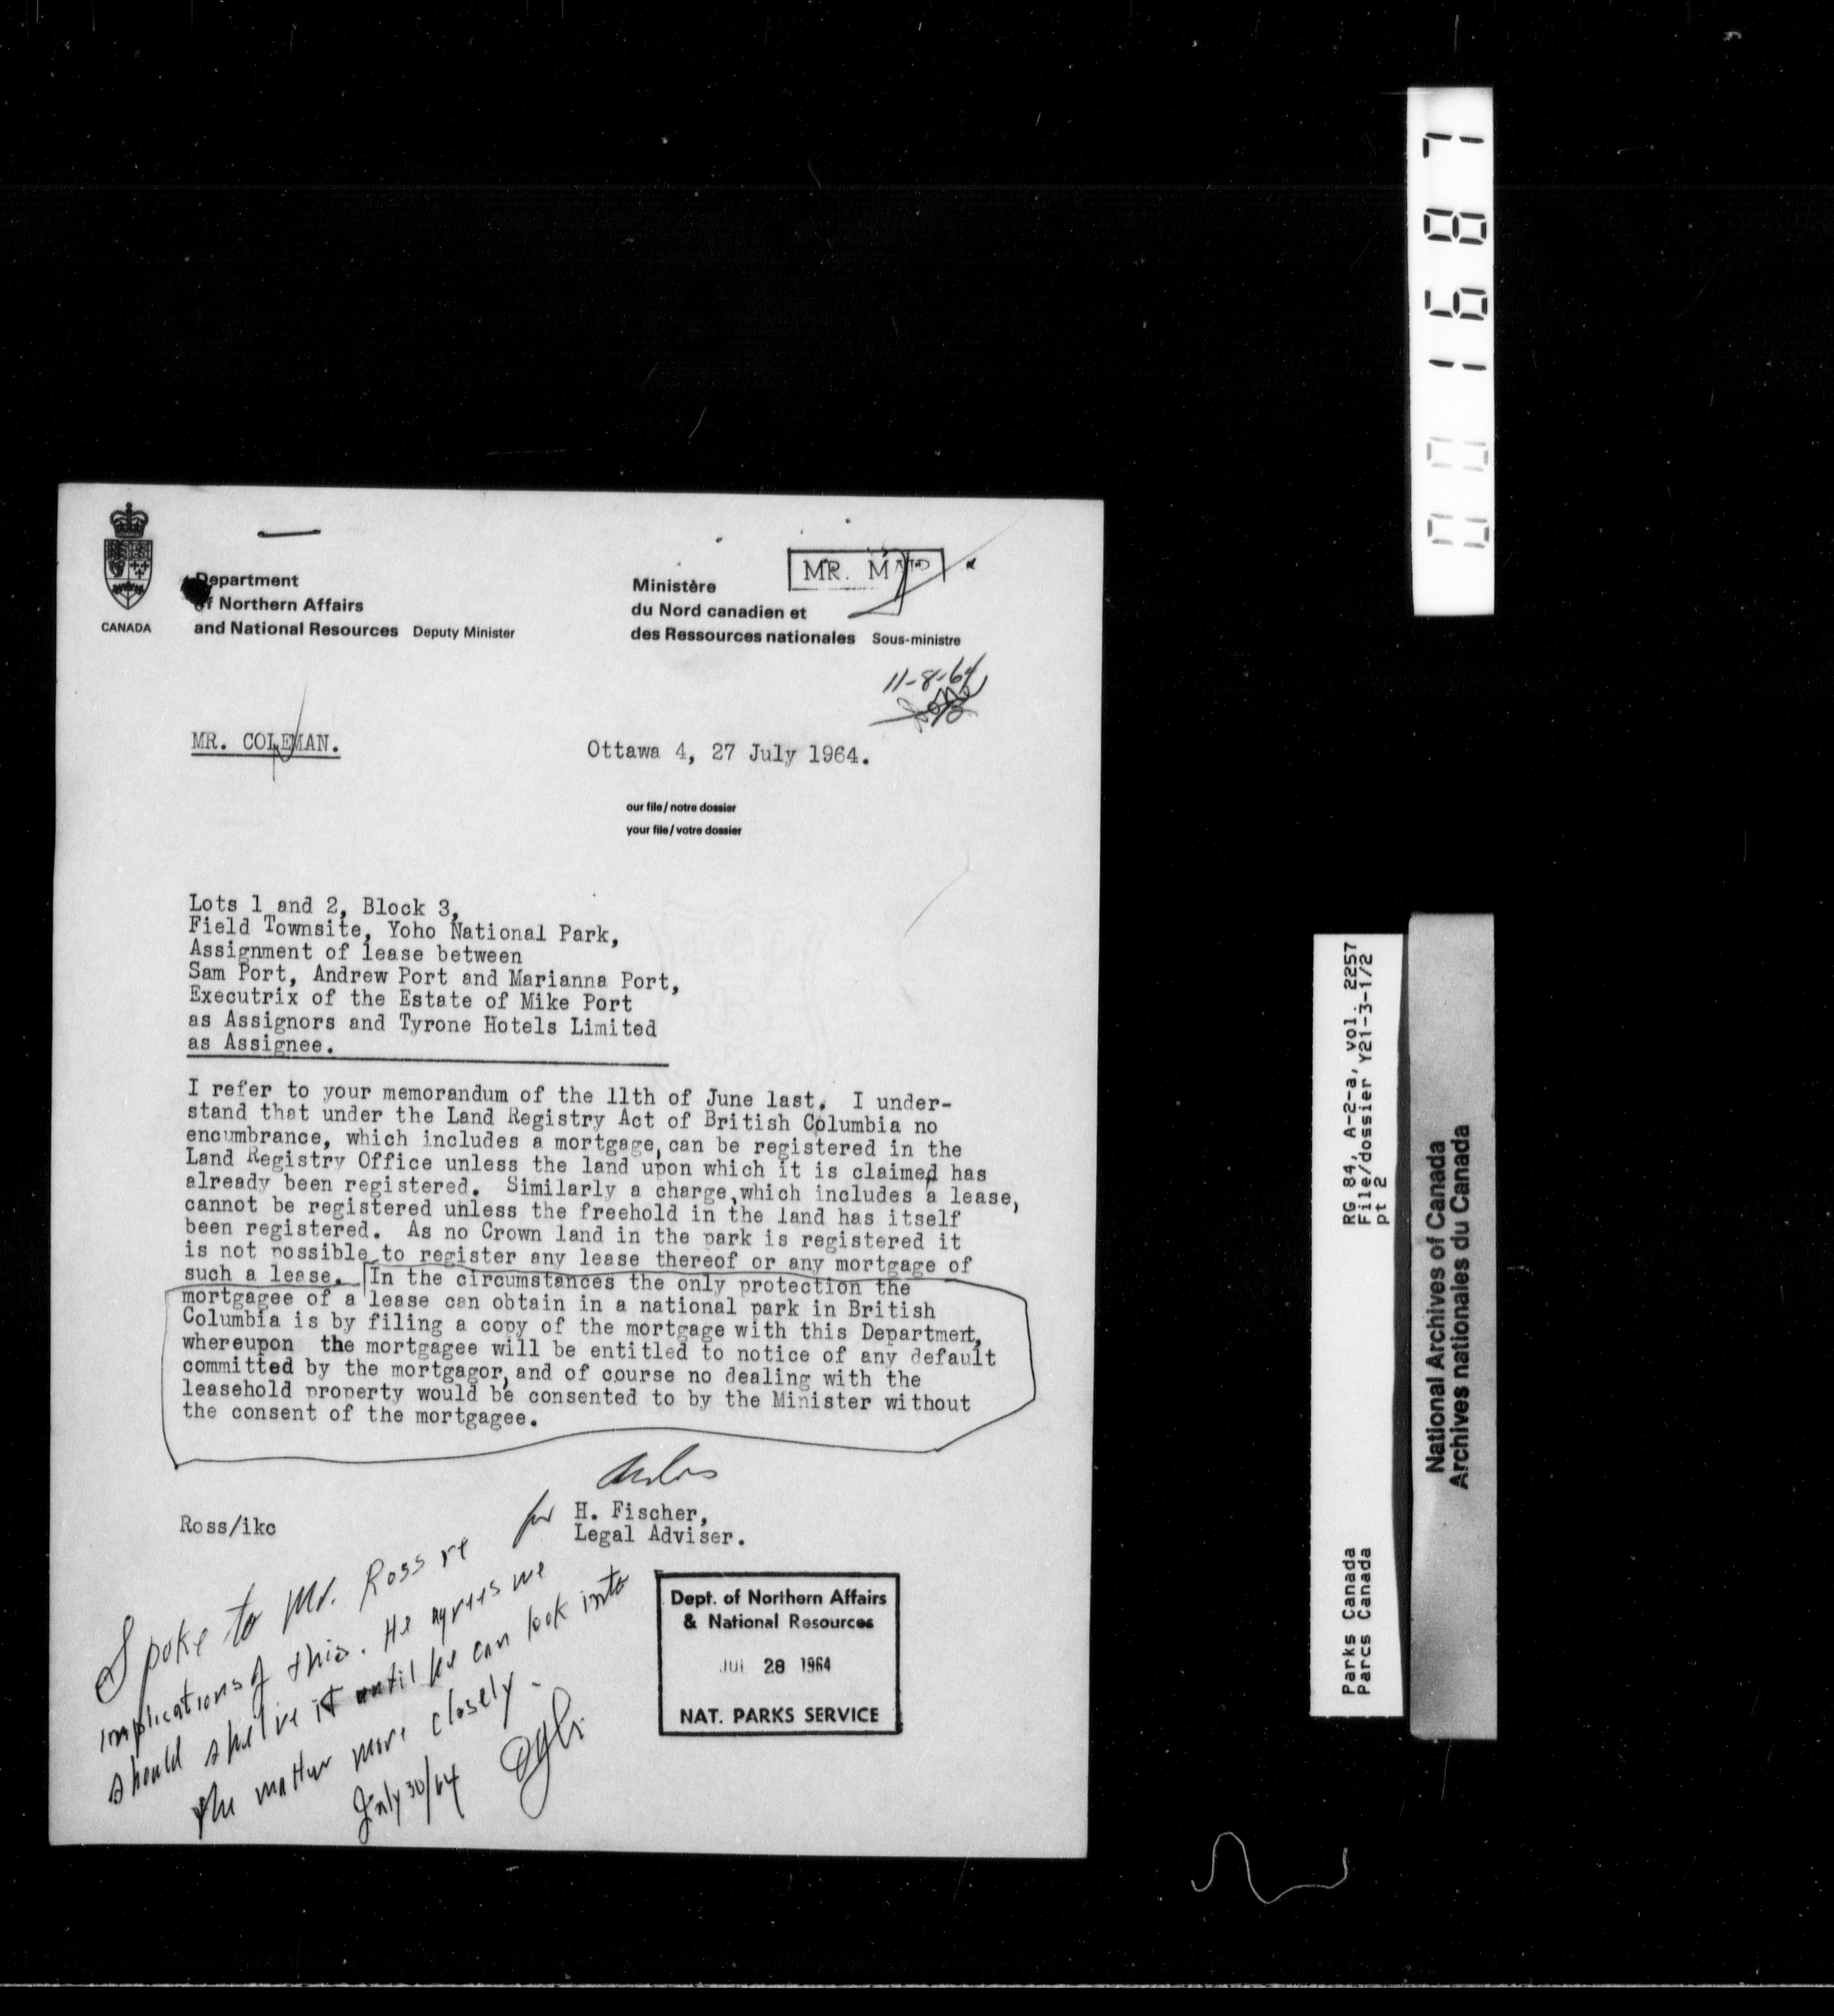 CANADA
Department
of Northern Affairs
and National Resources Deputy Minister
Ministère
du Nord canadien et
des Ressources nationales Sous-ministre
MR.
11-8-64
MR. COLEMAN.
Ottawa 4, 27 July 1964.
our file/notre dossier
your file/votre dossier
Lots 1 and 2, Block 3,
Field Townsite, Yoho National Park,
Assignment of lease between
Sam Port, Andrew Port and Marianna Port,
Executrix of the Estate of Mike Port
as Assignors and Tyrone Hotels Limited
as Assignee.
I refer to your memorandum of the 11th of June last. I under-
stand that under the Land Registry Act of British Columbia no
encumbrance, which includes a mortgage, can be registered in the
Land Registry Office unless the land upon which it is claimed has
already been registered. Similarly a charge, which includes a lease,
cannot be registered unless the freehold in the land has itself
been registered. As no Crown land in the park is registered it
is not possible to register any lease thereof or any mortgage of
such a lease. In the circumstances the only protection the
mortgagee of a lease can obtain in a national park in British
Columbia is by filing a copy of the mortgage with this Department,
whereupon the mortgagee will be entitled to notice of any default
committed by the mortgagor, and of course no dealing with the
leasehold property would be consented to by the Minister without
the consent of the mortgagee.
for H. Fischer,
Legal Adviser.
Ross/ikc
Spoke to Mr. Ross re
implications of this. He agrees we
should shelve it until he can look into
the matter more closely.
July 30/64
Dept. of Northern Affairs
& National Resources
JUL 28 1964
NAT. PARKS SERVICE
001687
RG 84, A-2-a, vol. 2257
File/dossier Y21-3-1/2
pt 2
Parks Canada
Parcs Canada
National Archives of Canada
Archives nationales du Canada